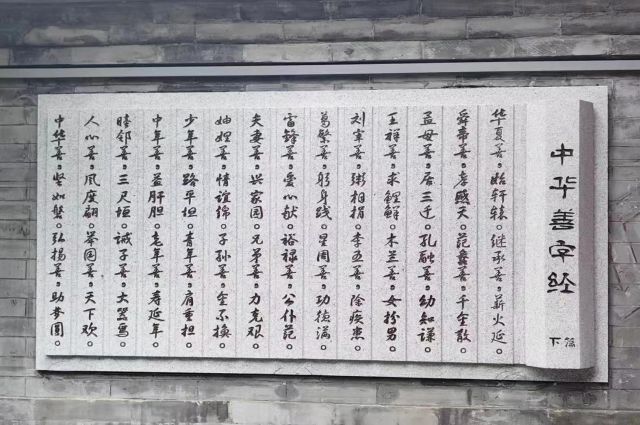 中华善字经
下篇
华夏善，始轩辕。继承善，薪火延。
舜帝善，孝感天。范蠡善，千金散。
孟母善，居三迁。孔融善，幼知谦。
王祥善，求鲤鲜。木兰善，女扮男。
刘宽善，粥相捐。李五善，除疾患。
葛繁善，躬身践。星周善，功德满。
雷锋善，爱心献。裕禄善，公仆范。
夫妻善，兴家园。兄弟善，力克艰。
妯娌善，情谊绵。子孙善，金不换。
少年善，路平坦。青年善，肩重担。
中年善，益肝胆。老年善，寿延年。
睦邻善，三尺垣。诚子善，大器焉。
人心善，风度翩。举国善，天下欢。
中华善，坚如磐。弘扬善，助梦圆。